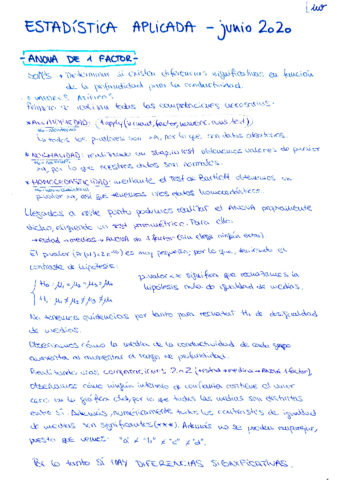 luv
ESTADÍSTICA APLICADA - junio 2020
- ANOVA DE 1 FACTOR -
Determinar si existen diferencias significativas en función
de la profundidad para la conductividad.
Primero se realizan todas las comprobaciones necesarias.
* ALEATORIEDAD:
todos los pvalores son >α, por lo que son datos aleatorios.
* NORMALIDAD: realizando un shapiro.test obtenemos valores de pvalor
>α, por lo que nuestros datos son normales.
* HOMOCEDASTICIDAD: mediante el test de Bartlett obtenemos un
pvalor >α, así que tenemos unos datos homocedásticos.
Llegados a este punto podemos realizar el ANOVA propiamente
dicho, eligiendo un test paramétrico. Para ello:
→ estad → medias → ANOVA de 1 factor
El pvalor es muy pequeño; por lo que, teniendo el
contraste de hipótesis:
H₀: μ₁ = μ₂ = μ₃ = μ₄
H₁: μ₁ ≠ μ₂ ≠ μ₃ ≠ μ₄
pvalor < α significa que rechazamos la
hipótesis nula de igualdad de medias.
No tenemos evidencias por tanto para rechazar H₁ de desigualdad
de medias.
Observamos cómo la media de la conductividad de cada grupo
aumenta al aumentar el rango de profundidad.
Realizando las comparaciones 2a2 [→ estad → medias → ANOVA 1 factor],
observamos cómo ningún intervalo de confianza contiene el valor
cero en la gráfica dada, por lo que todas las medias son distintas
entre sí. Además, numéricamente todos los contrastes de igualdad
de medias son significantes (***). Además no se pueden reagrupar,
puesto que vemos: "a" ≠ "b" ≠ "c" ≠ "d".
Por lo tanto SÍ HAY DIFERENCIAS SIGNIFICATIVAS.